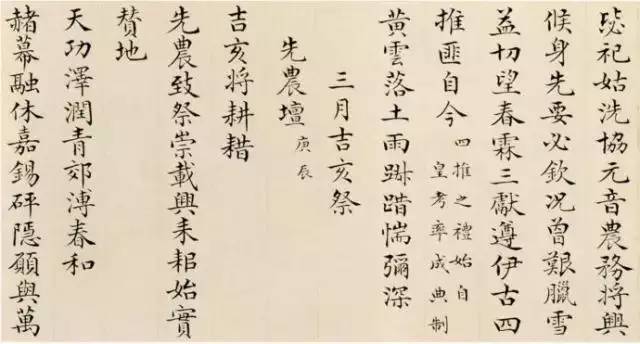 毖祀姑洗協元音農務將興
候身先要必欽況曾艱臘雪
益切望春霖三獻遵伊古四
推匪自今
四推之禮始自
皇考率成典制
黃雲落土雨踧踖惴彌深
三月吉亥祭
先農壇 庚辰
吉亥將耕耤
先農致祭崇載興耒耜始實
贊地
天功澤潤青郊溥春和
赭幕融休嘉錫砰隱願與萬